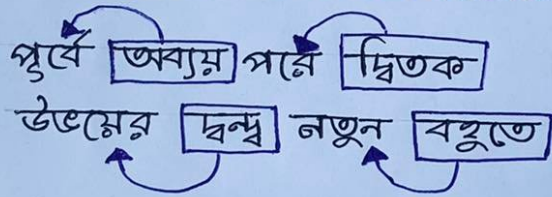 পূর্বে অব্যয় পরে দ্বিতক
উভয়ের দ্বন্দ্ব নতুন বহুতে